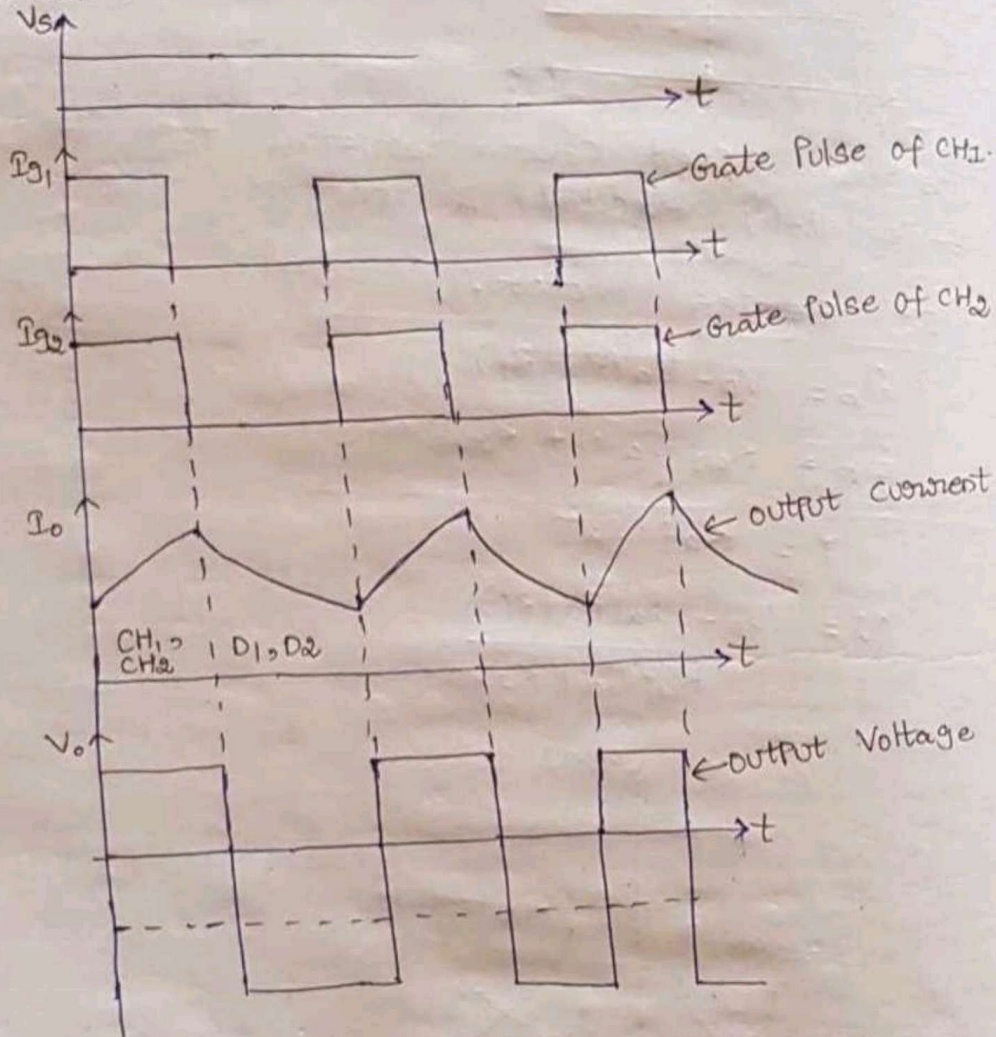 Vs
t
Ig1
Grate Pulse of CH1.
t
Ig2
Grate Pulse of CH2
t
Io
output current
CH1,
CH2
D1,D2
t
Vo
output Voltage
t